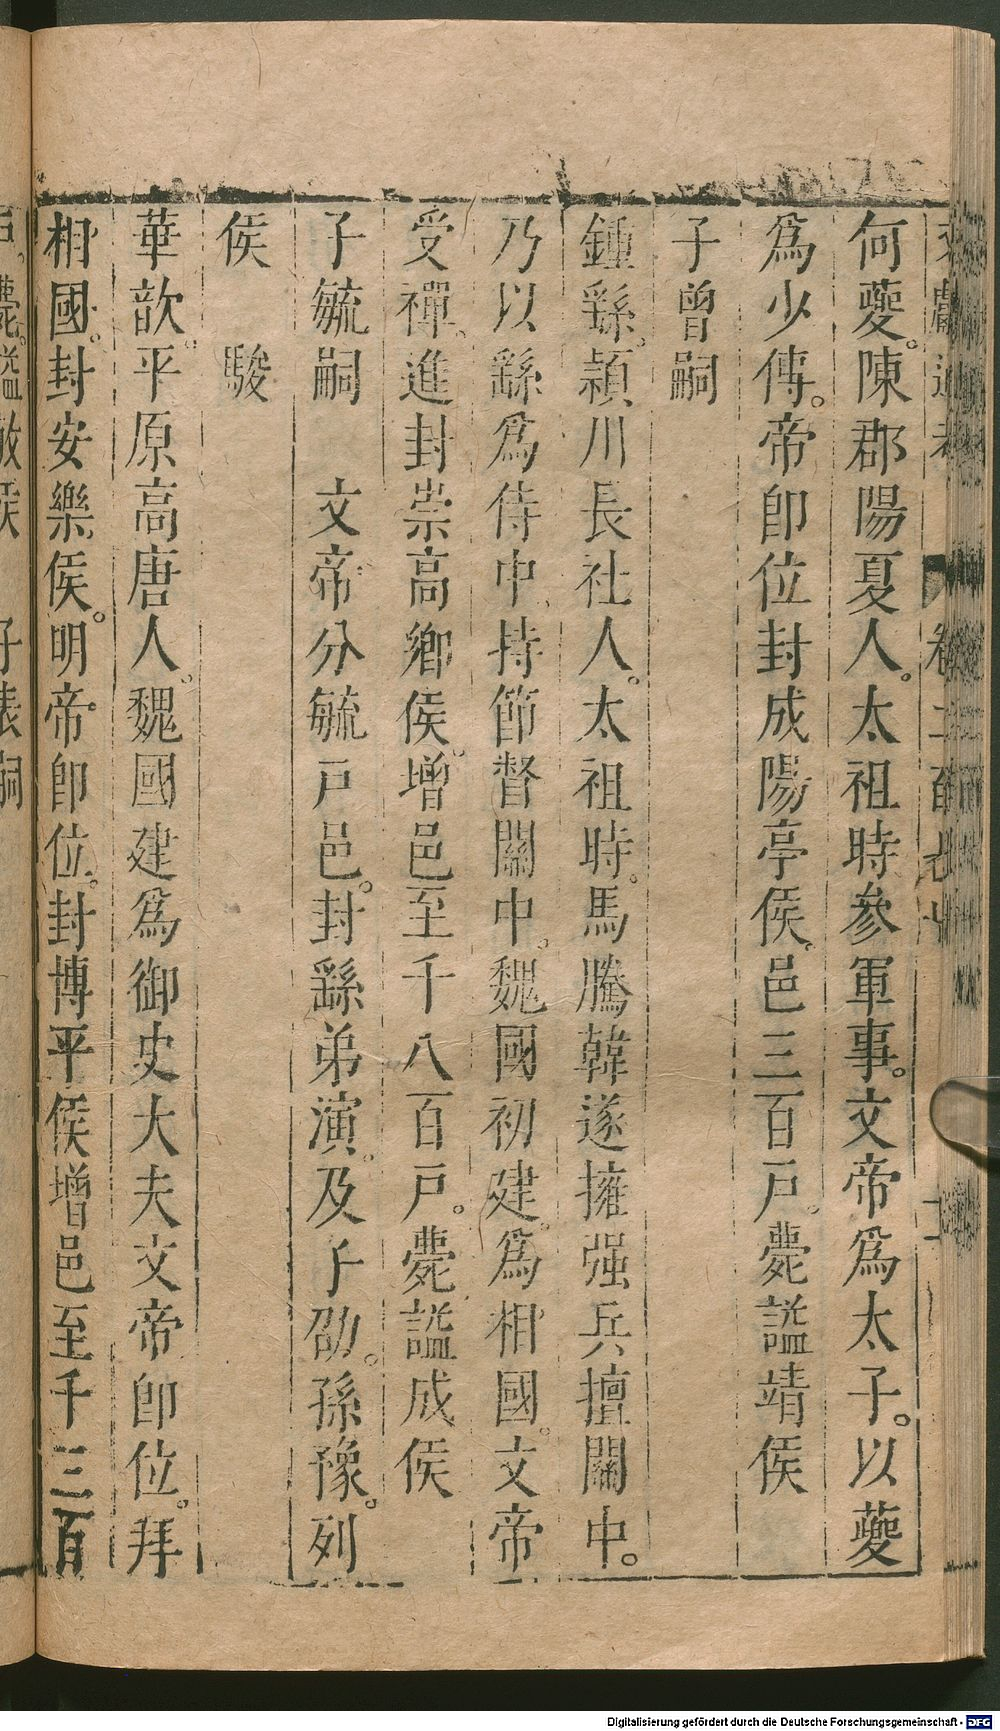 何夔。陳郡陽夏人。太祖時參軍事。文帝爲太子。以夔
爲少傅。帝卽位封成陽亭侯。邑三百戶。薨謚靖侯
子曾嗣
鍾繇。潁川長社人。太祖時。馬騰韓遂擁强兵擅關中。
乃以繇爲侍中持節督關中。魏國初建。爲相國。文帝
受禪。進封崇高鄉侯。增邑至千八百戶。薨謚成侯
子毓嗣　文帝分毓戶邑。封繇弟演。及子劭。孫豫。列
侯　駿
華歆。平原高唐人。魏國建爲御史大夫文帝卽位。拜
相國。封安樂侯。明帝卽位。封博平侯增邑至千三百
Digitalisierung gefördert durch die Deutsche Forschungsgemeinschaft - DFG